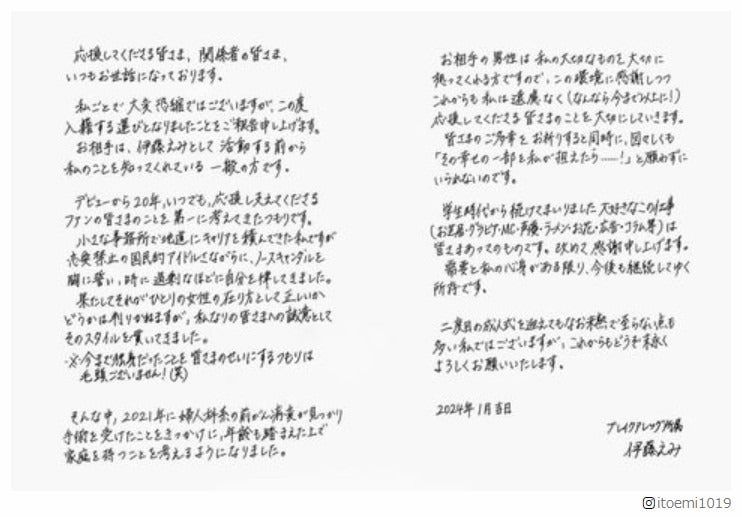 応援してくださる皆さま、関係者の皆さま、
いつもお世話になっております。
私ごとで大変恐縮ではございますが、この度
入籍する運びとなりましたことをご報告申し上げます。
お相手は、伊藤えみとして活動する前から
私のことを知ってくれている一般の方です。
デビューから20年、いつでも、応援し支えてくださる
ファンの皆さまのことを第一に考えてきたつもりです。
小さな事務所で地道にキャリアを積んできた私ですが
恋愛禁止の国民的アイドルさながらに、ノースキャンダルを
胸に誓い、時に過剰なほどに自分を律してきました。
果たしてそれがひとりの女性の在り方として正しいか
どうかは判りかねますが、私なりの皆さまへの誠意として
そのスタイルを貫いてきました。
※今まで独身だったことを皆さまのせいにするつもりは
毛頭ございません!(笑)
そんな中、2021年に婦人科系の前がん病変が見つかり
手術を受けたことをきっかけに、年齢も踏まえた上で
家庭を持つことを考えるようになりました。
お相手の男性は私の大切なものを大切に
想ってくれる方ですので、この環境に感謝しつつ
これからも私は遠慮なく(なんなら今まで以上に!)
応援してくださる皆さまのことを大切にしていきます。
皆さまのご多幸をお祈りすると同時に、図々しくも
「その幸せの一部を私が担えたら……!」と願わずに
いられないのです。
学生時代から続けてまいりました大好きなこの仕事
(お芝居・グラビア・MC・声優・ラーメン・お花・広告・コラム等)は
皆さまあってのものです。改めて感謝申し上げます。
需要と私の心身がある限り、今後も継続してゆく
所存です。
二度目の成人式を迎えてもなお未熟で至らない点も
多い私ではございますが、これからもどうぞ末永く
よろしくお願いいたします。
2024年1月吉日
ブレイクアレッグ所属
伊藤えみ
itoemi1019